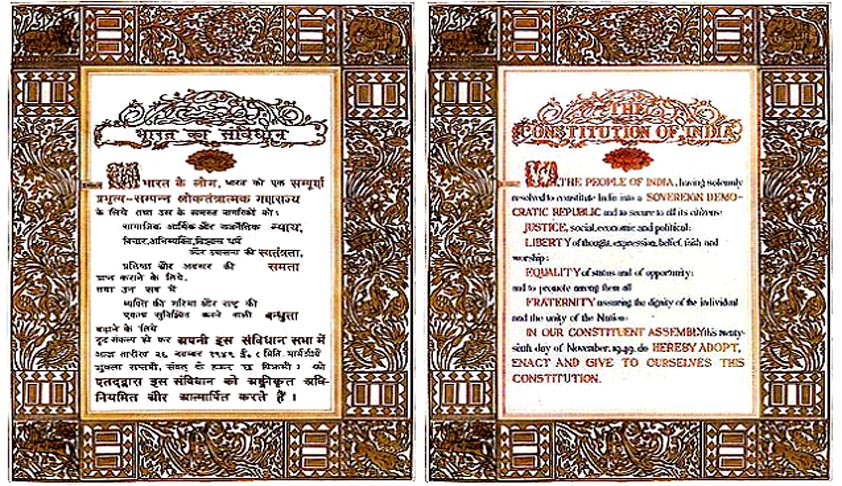 भारत का संविधान
हम भारत के लोग, भारत को एक सम्पूर्ण
प्रभुत्व-सम्पन्न लोकतंत्रात्मक गणराज्य
बनाने के लिये तथा उस के समस्त नागरिकों को:
सामाजिक आर्थिक और राजनैतिक न्याय,
विचार,अभिव्यक्ति,विश्वास धर्म
और उपासना की स्वतंत्रता,
प्रतिष्ठा और अवसर की समता
प्राप्त कराने के लिये,
तथा उन सब में
व्यक्ति की गरिमा और राष्ट्र की
एकता सुनिश्चित करने वाली बन्धुता
बढ़ाने के लिये
दृढ़ संकल्प हो कर अपनी इस संविधान सभा में
आज तारीख २६ नवम्बर १९४९ ई॰ (मिति मार्गशीर्ष
शुक्ला सप्तमी, संवत् दो हज़ार छ विक्रमी) को
एतद्द्वारा इस संविधान को अङ्गीकृत अधि-
नियमित और आत्मार्पित करते हैं ।
THE
CONSTITUTION OF INDIA
WE, THE PEOPLE OF INDIA, having solemnly
resolved to constitute India into a SOVEREIGN DEMO-
CRATIC REPUBLIC and to secure to all its citizens:
JUSTICE, social, economic and political;
LIBERTY of thought, expression, belief, faith and
worship;
EQUALITY of status and of opportunity;
and to promote among them all
FRATERNITY assuring the dignity of the individual
and the unity of the Nation;
IN OUR CONSTITUENT ASSEMBLY this twenty-
sixth day of November, 1949, do HEREBY ADOPT,
ENACT AND GIVE TO OURSELVES THIS
CONSTITUTION.